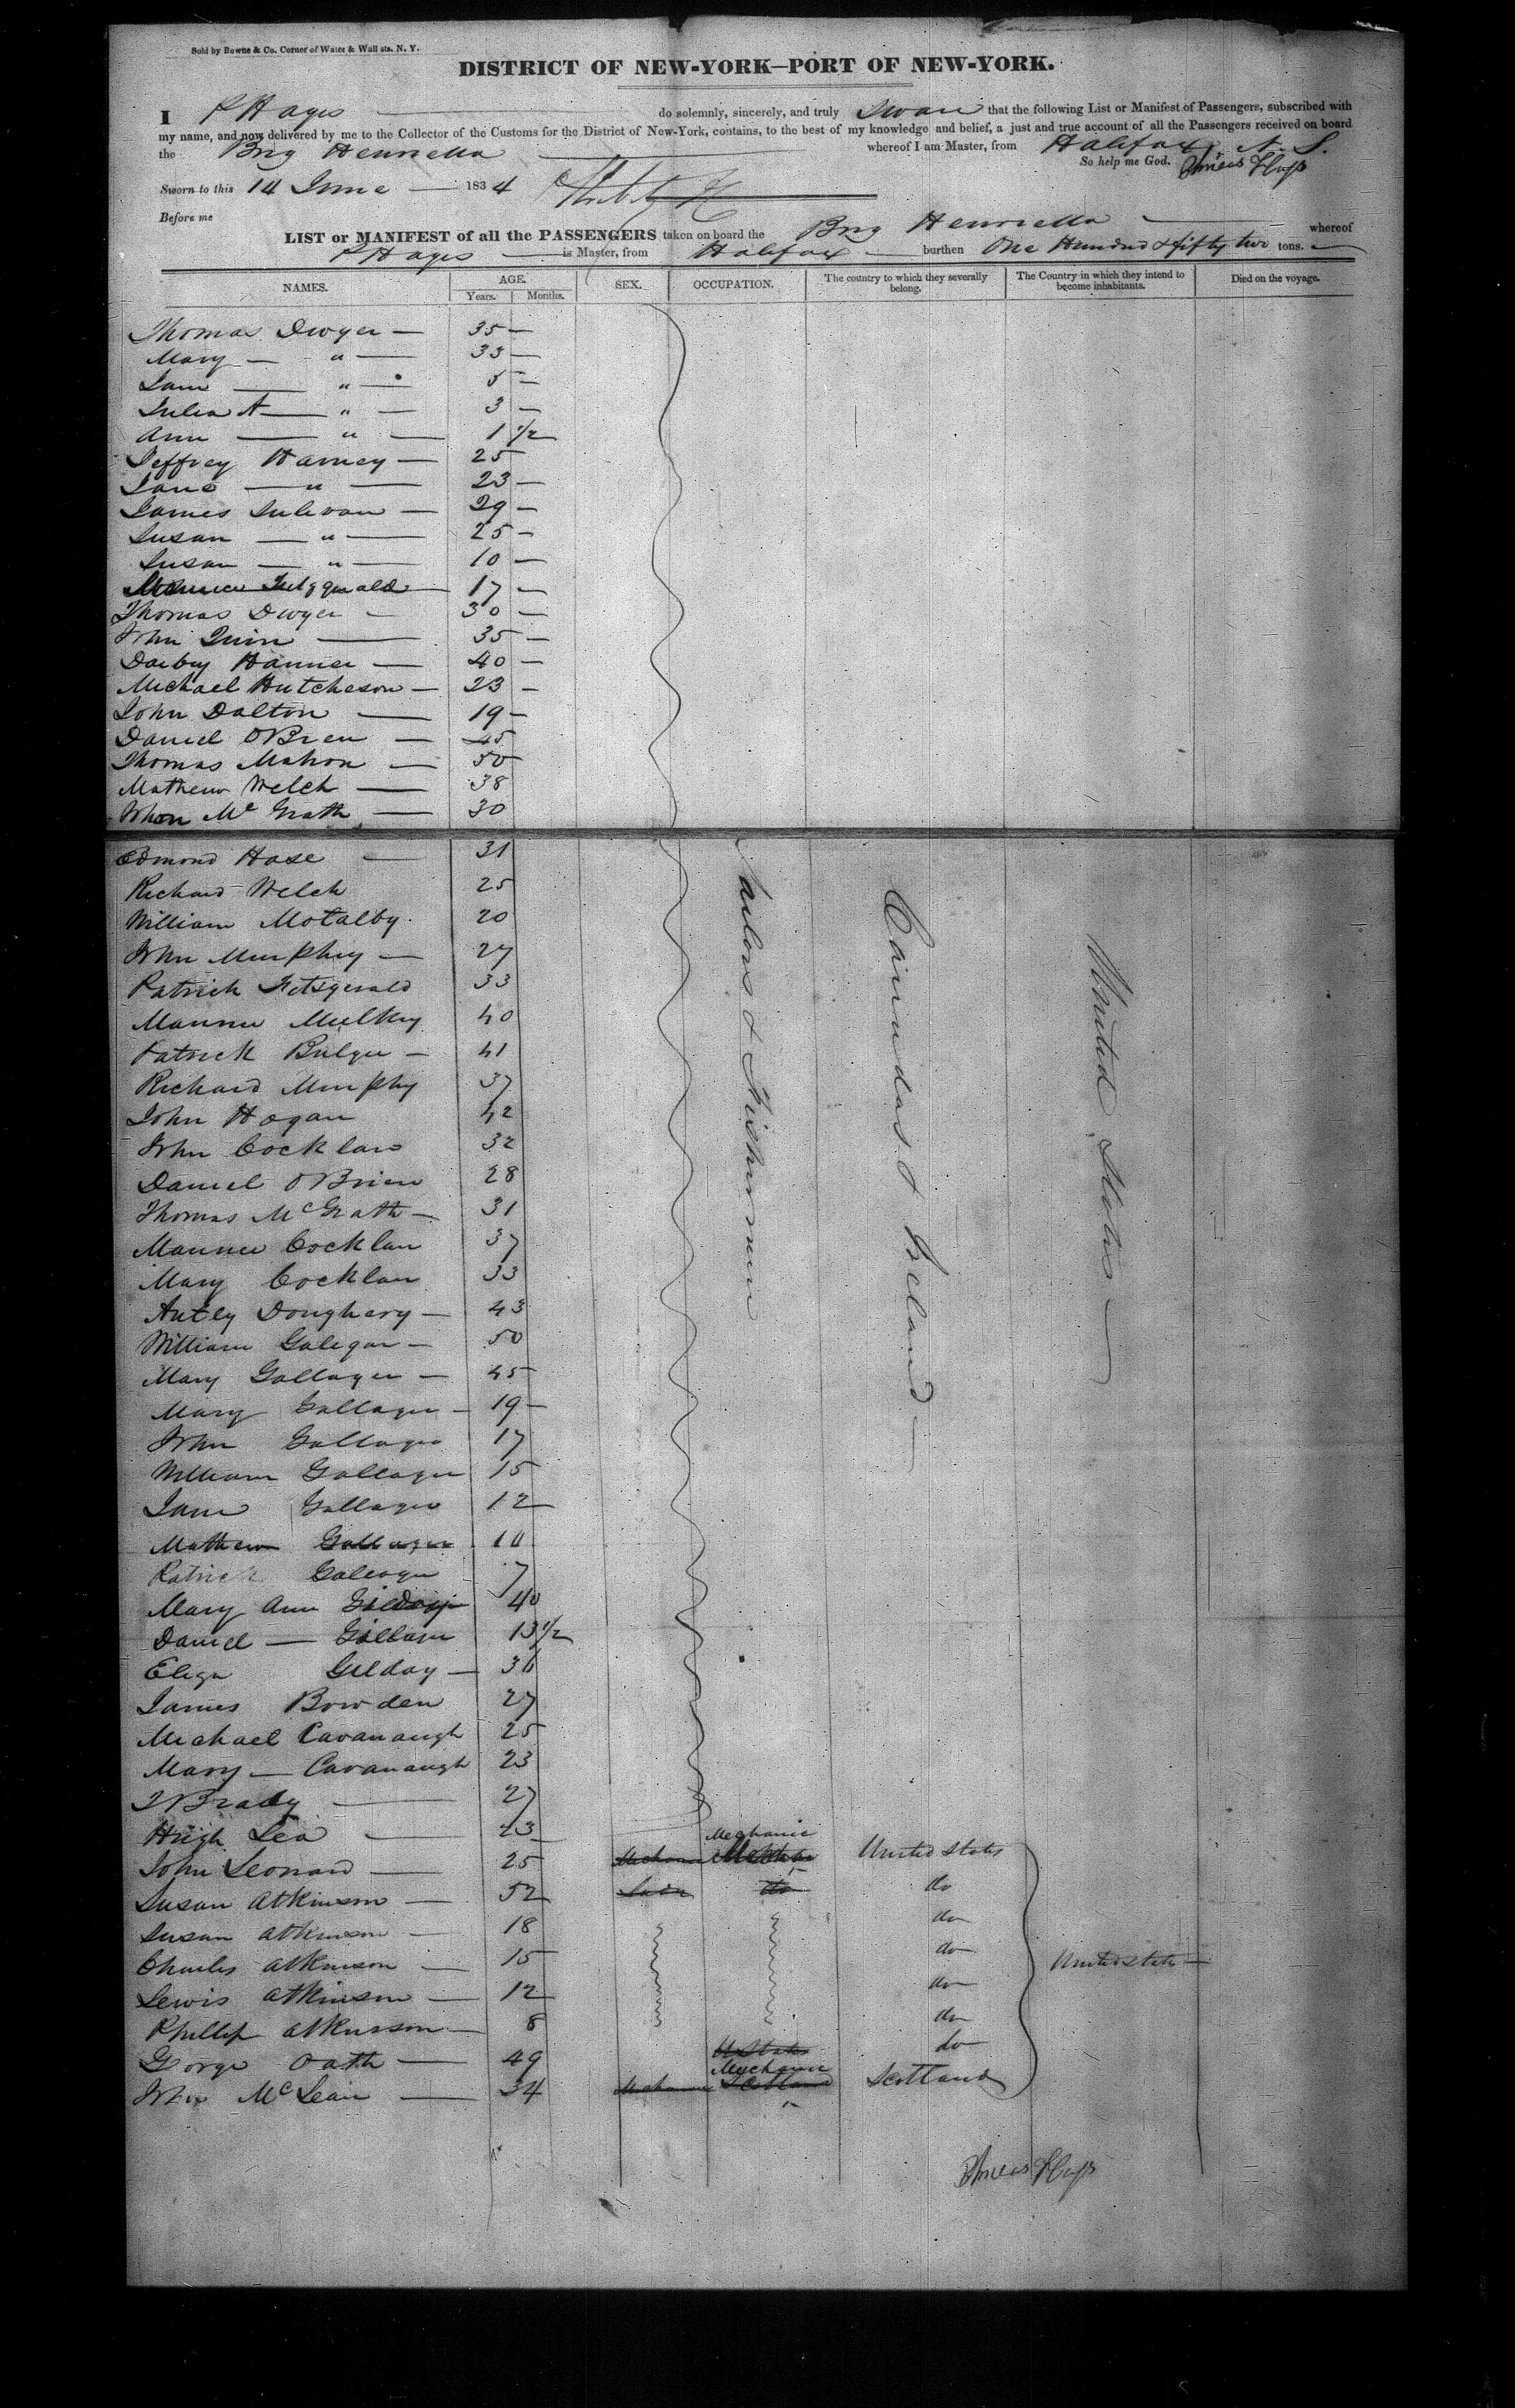 Sold by Bowne & Co. Corner of Water & Wall sts. N. Y.
DISTRICT OF NEW-YORK—PORT OF NEW-YORK.
I P Hays do solemnly, sincerely, and truly Swear that the following List or Manifest of Passengers, subscribed with
my name, and now delivered by me to the Collector of the Customs for the District of New-York, contains, to the best of my knowledge and belief, a just and true account of all the Passengers received on board
the Brig Henrietta whereof I am Master, from Halifax, N. S.
So help me God.
Sworn to this 14 June 1834
Before me
LIST or MANIFEST of all the PASSENGERS taken on board the Brig Henrietta whereof
P Hays is Master, from Halifax burthen One Hundred & fifty two tons.
NAMES. AGE. Years. Months. SEX. OCCUPATION. The country to which they severally belong. The Country in which they intend to become inhabitants. Died on the voyage.
Thomas Dwyer — 35 —
Mary — " — 33 —
Jane — " — 5 —
Julia A — " — 3 —
Ann — " — 1 1/2
Jeffrey Harney — 25
Jane — " — 23 —
James Sulivan — 29 —
Susan — " — 25 —
Susan — " — 10 —
17 —
Thomas Dwyer — 30 —
John Quin — 35 —
Darby Hanner — 40 —
Michael Hutcheson — 23 —
John Dalton — 19 —
Daniel OBrien — 45
Thomas Mahon — 50
Mathew Welch — 38
John McGrath — 30
Edmond Hase — 31
Richard Welch 25
William Motalby 20
John Murphy — 27
Patrick Fitsgerald 33
Maurice Mulkey 40
Patrick Bulger — 41
Richard Murphy 37
John Hogan 42
John Cocklan 32
Daniel OBrien 28
Thomas McGrath — 31
Maurice Cocklan 37
Mary Cocklan 33
Antey Doughery — 43
William Galegar — 50
Mary Gallager — 45
Mary Gallager — 19 —
John Gallager 17
William Gallager 15
Jane Gallager 12
Mathew Gallager 10
Patrick Galeager 7
Mary Ann 40
Daniel — 13 1/2
Eliza Gilday — 36
James Bowden 27
Michael Cavanaugh 25
Mary — Cavanaugh 23
J Brady — 27
Sailors & Fishermen
Canindas & Ireland —
United States —
Hugh Lea — 23
John Leonard — 25 Mechanic United States
Susan Atkinson — 52 do
Susan Atkinson — 18 do
Charles Atkinson — 15 do
United States —
Lewis Atkinson — 12 do
Phillip Atkinson — 8 do
George Oath — 49 do
John McLean — 34 Mechanic Scotland